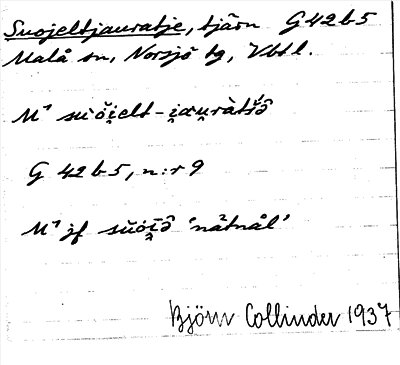 Suojeltjauratje, tjärn G42b5
Malå sn, Norsjö tg, Vbt l.
M¹ sùŏi̯elt-i̯æu̯ràtš́ə̂
G 42 b 5, n:r 9
M¹ jf sŭói̯ə̂ 'nåtnål'
Björn Collinder 1937